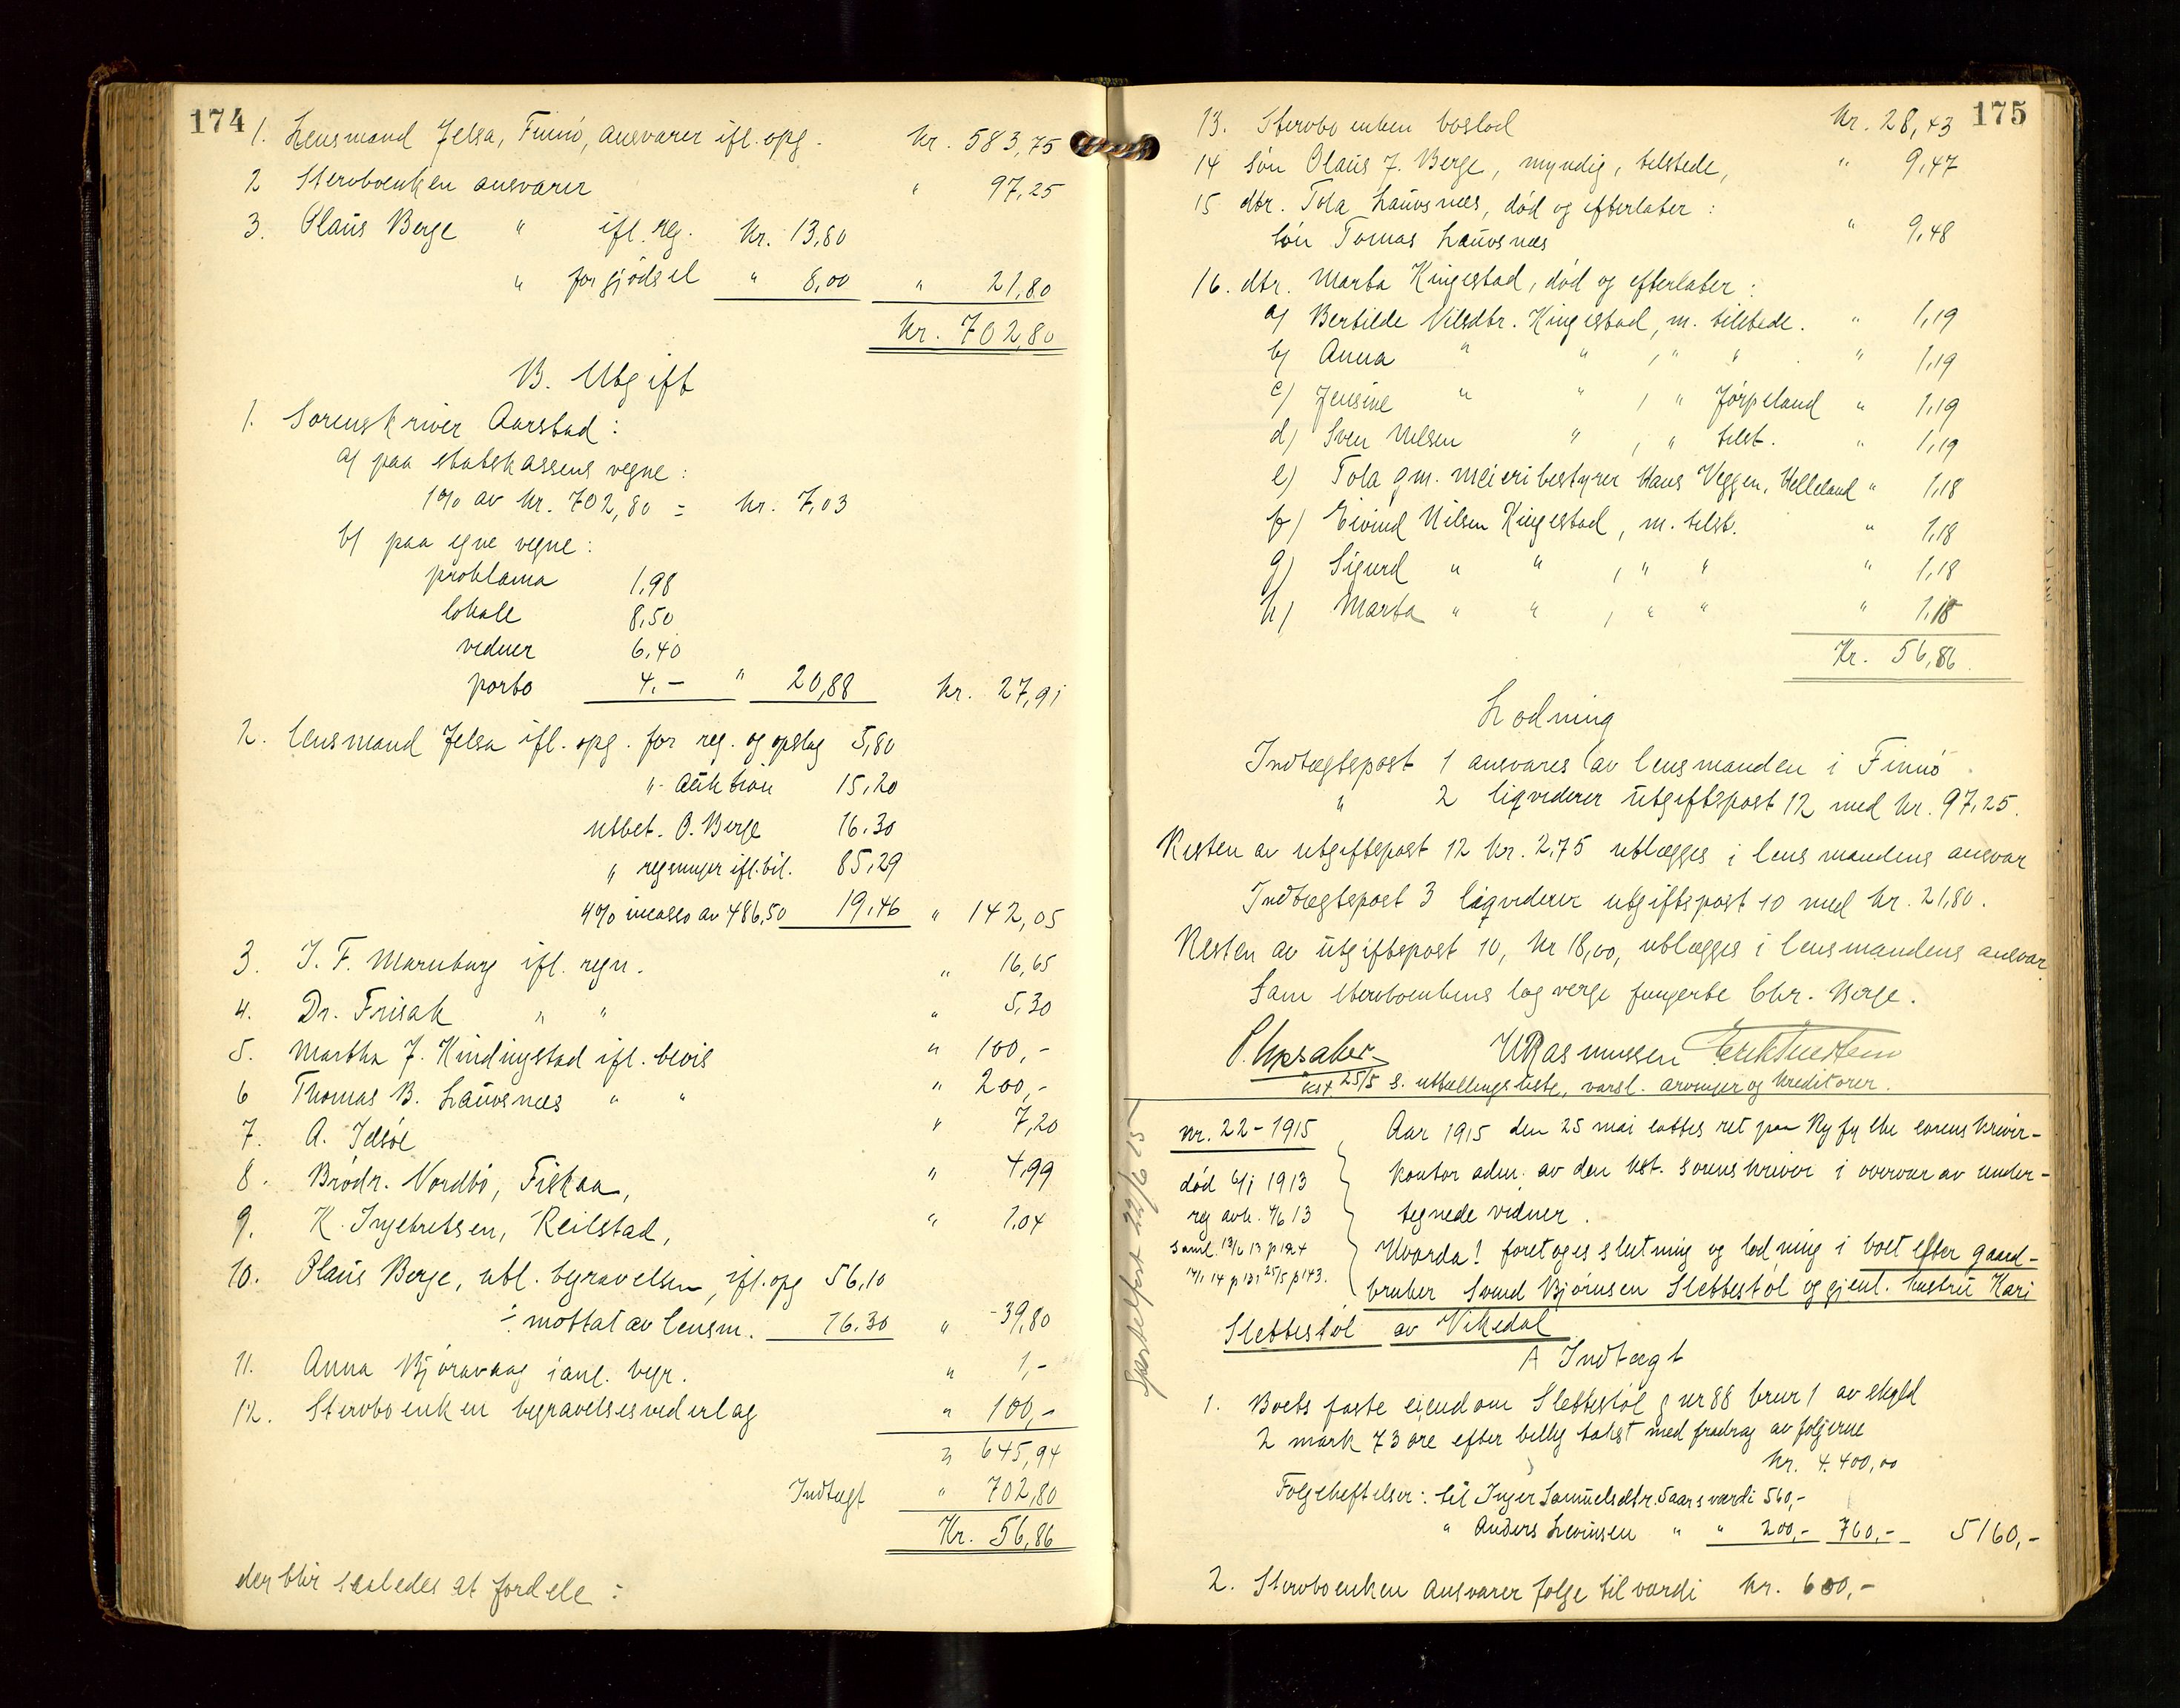 174
1. Lensmand Jelsa, Finnö, ansvarer ifl. opg. kr. 583,75
2 Sterboenken ansvarer " 97,25
3. Olaüs Berge " ifl. reg. kr. 13,80
" for gjödsel " 8,00 " 21,80
kr. 702,80
B. Utgift
1. Sorenskriver Aarstad:
a) paa statskassens vegne:
1% av kr. 702,80 = kr. 7,03
b) paa egne vegne:
proklama 1,98
lokale 8,50
vidner 6,40
porto 4.- " 20,88 kr. 27,91
2. lensmand Jelsa ifl. opg. for reg. og opslag 5,80
" auktion 15,20
utbet. O. Berge 16.30
" regninger ifl. bil. 85,29
4% incasso av 486,50 19,46 " 142,05
3. J. F. Marnburg ifl. regn. " 16,65
4. Dr. Frisak " " " 5,30
5. Martha J. Kindingstad ifl. bevis " 100,-
6 Thomas B. Laüvsnæs " " " 200,-
7. A. Idsöe " 7,20
8. Brödr. Nordbö, Fiskaa, " 4,99
9. K. Ingebretsen, Reilstad, " 1.04
10. Olaüs Berge, utl. begravelsen, ifl. opg 56,10
÷ mottat av lensm. 16.30 " 39,80
11. Anna Björavaag i anl. begr. " 1,-
12. Sterboenken begravelsesvederlag " 100,-
" 645,94
Indtægt " 702,80
Kr. 56,86
der blir saaledes at fordele:
175
13. Sterboenken boslod kr. 28,43
14 sön Olaüs J. Berge, myndig, tilstede, " 9,47
15 dtr. Tola Laüvsnæs, död og efterlater:
sön Tomas Laüvsnæs " 9,48
16. dtr. Marta Kingestad, död og efterlater:
a) Bertilde Nilsdtr. Kingestad, m. tilstede. " 1,19
b) Anna " " , " " . " 1,19
c) Jensine " " , " Jörpeland " 1,19
d) Sven Nilsen " , " tilst. " 1,19
e) Tola gm. meieribestyrer Hans Veggen, Helleland " 1,18
f) Eivind Nilsen Kingestad, m. tilst. " 1,18
g) Sigurd " " , " " " 1,18
h) Marta " " , " " " 1,18
Kr. 56,86.
Lodning
Indtægtspost 1 ansvares av lensmanden i Finnö
" 2 liqviderer ütgiftspost 12 med kr. 97,25.
Resten av utgiftspost 12 kr. 2,75 utlægges i lensmandens ansvar
Indtægtspost 3 liqviderer utgiftspost 10 med kr. 21,80.
Resten av ütgiftspost 10, kr 18,00, utlægges i lensmandens ansvar.
Som sterboenkens lagverge fungerte Chr. Berge.
URasmussen
25/5 s. utlodlingsliste, varsl. arvinger og kreditorer.
nr. 22-1915
död 6/1 1913
reg avh. 4/6 13
saml. 13/6 13 p 124
Aar 1915 den 25 mai sattes ret paa Ryfylke sorenskriver-
kontor adm. av den kst. sorenskriver i overvær av under-
tegnede vidner.
Hvorda! foretoges slutning og lodning i boet efter gaard-
bruker Svend Björnsen Slettestöl og gjenl. hustrü Kari
Slettestöl av Vikedal
A Indtægt
1. Boets faste eiendom Slettestöl gnr 88 brnr 1 av skyld
2 mark 73 öre efter billig takst med fradrag av folgerne
kr. 4.400,00
Folgeheftelser: til Inger Samuelsdtr. 5 aars værdi 560,-
" Anders Levinsen " " 200,- 760,- 5160,-
2. Sterboenken ansvarer folge til værdi kr. 600,-